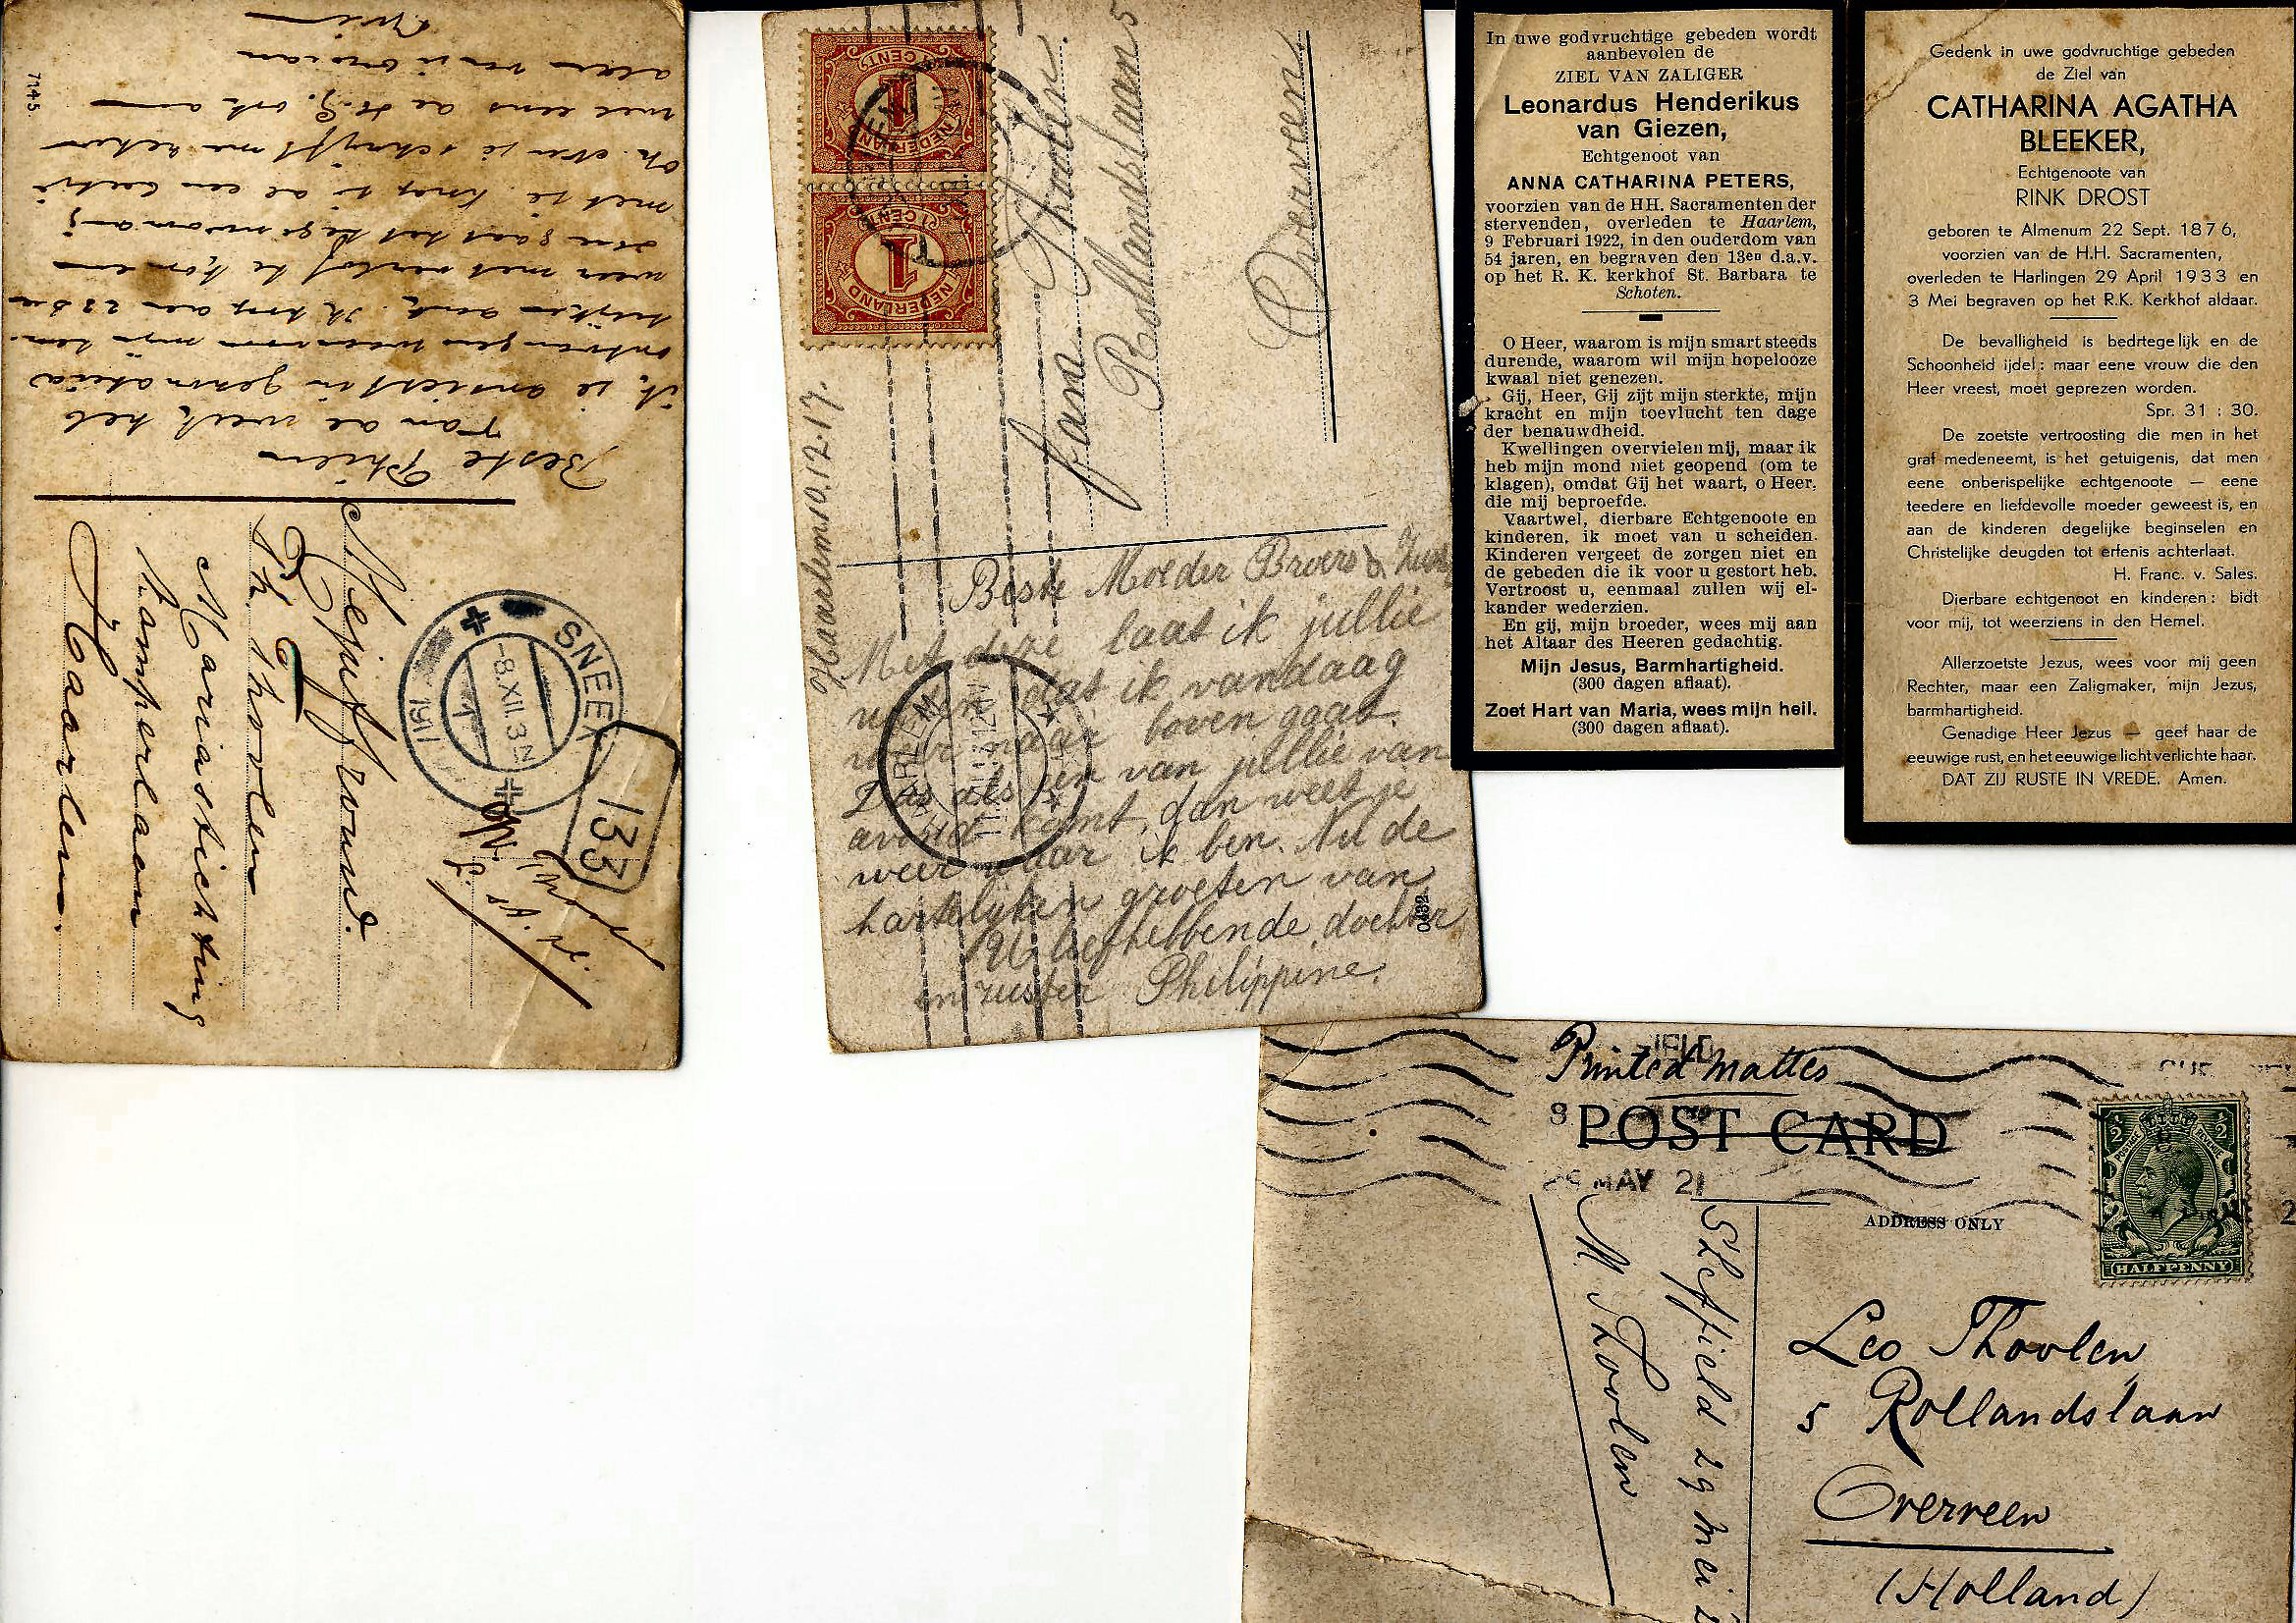 Beste Phien
Van de week heb
ik je ansicht in
ontvangen waarvoor mijn
dank. Ik hoop den 23 Dec
weer met verlof te komen
dan gaat het
met je.
op. schrijft me zeker
wel eens
allen van U
7145
Mejuffrouw.
Ph. Thoolen
Mariastichting
Kamperlaan
Haarlem.
SNEEK
-8.XII.3-4N
1917
133
NEDERLAND
1 CENT
NEDERLAND
1 CENT
Fam. Thoolen.
Rollandslaan 5
Overveen
Haarlem 10.12.17.
Beste Moeder Broers & Zusje
Met deze laat ik jullie
weten dat ik vandaag
weer naar boven gaat.
Dus als een van jullie van
avond komt, dan weet je
weer waar ik ben. Nu de
hartelijken groeten van
U liefhebbende dochter
en zuster Philippine.
HAARLEM
0432
In uwe godvruchtige gebeden wordt
aanbevolen de
ZIEL VAN ZALIGER
Leonardus Henderikus
van Giezen,
Echtgenoot van
ANNA CATHARINA PETERS,
voorzien van de HH. Sacramenten der
stervenden, overleden te Haarlem,
9 Februari 1922, in den ouderdom van
54 jaren, en begraven den 13en d.a.v.
op het R. K. kerkhof St. Barbara te
Schoten.
O Heer, waarom is mijn smart steeds
durende, waarom wil mijn hopelooze
kwaal niet genezen.
Gij, Heer, Gij zijt mijn sterkte, mijn
kracht en mijn toevlucht ten dage
der benauwdheid.
Kwellingen overvielen mij, maar ik
heb mijn mond niet geopend (om te
klagen), omdat Gij het waart, o Heer,
die mij beproefde.
Vaartwel, dierbare Echtgenoote en
kinderen, ik moet van u scheiden.
Kinderen vergeet de zorgen niet en
de gebeden die ik voor u gestort heb.
Vertroost u, eenmaal zullen wij el-
kander wederzien.
En gij, mijn broeder, wees mij aan
het Altaar des Heeren gedachtig.
Mijn Jesus, Barmhartigheid.
(300 dagen aflaat).
Zoet Hart van Maria, wees mijn heil.
(300 dagen aflaat).
Gedenk in uwe godvruchtige gebeden
de Ziel van
CATHARINA AGATHA
BLEEKER,
Echtgenoote van
RINK DROST
geboren te Almenum 22 Sept. 1876,
voorzien van de H.H. Sacramenten,
overleden te Harlingen 29 April 1933 en
3 Mei begraven op het R.K. Kerkhof aldaar.
De bevalligheid is bedriegelijk en de
Schoonheid ijdel: maar eene vrouw die den
Heer vreest, moet geprezen worden.
Spr. 31 : 30.
De zoetste vertroosting die men in het
graf medeneemt, is het getuigenis, dat men
eene onberispelijke echtgenoote — eene
teedere en liefdevolle moeder geweest is, en
aan de kinderen degelijke beginselen en
Christelijke deugden tot erfenis achterlaat.
H. Franc. v. Sales.
Dierbare echtgenoot en kinderen: bidt
voor mij, tot weerziens in den Hemel.
Allerzoetste Jezus, wees voor mij geen
Rechter, maar een Zaligmaker, mijn Jezus,
barmhartigheid.
Genadige Heer Jezus — geef haar de
eeuwige rust, en het eeuwige licht verlichte haar.
DAT ZIJ RUSTE IN VREDE. Amen.
Printed Matter
POST CARD
MAY 21
ADDRESS ONLY
HALFPENNY
Sheffield 29 Mei
M. Thoolen
Leo Thoolen
5 Rollandslaan
Overveen
(Holland)